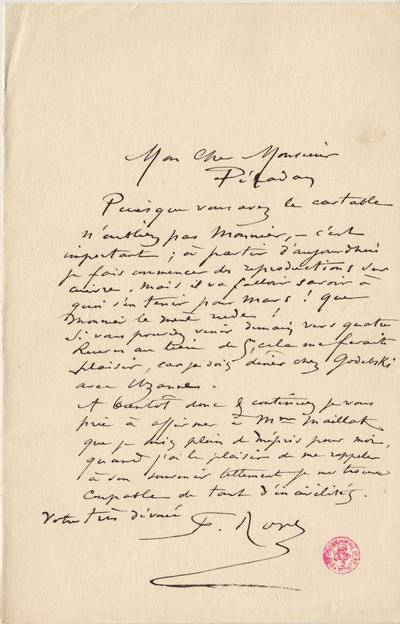 Mon Cher Monsieur
Péladan
Puisque vous avez le cartable
n'oubliez pas Monnier, – c'est
important ; à partir d'aujourdhui
je fais commencer des reproductions sur
cuivre. mais il va falloir savoir à
quoi s'en tenir pour Mars ! que
Monnier le rude !
Si vous pouviez venir demain vers quatre
heures au lieu de 5, cela me ferait
plaisir, car je dois dîner chez Godebski
avec Uzanne.
A bientôt donc & continuez je vous
prie à affirmer à Mme Maillat
que je suis plein de mépris pour moi,
quand j'ai le plaisir de me rappeler
à son souvenir tellement je me trouve
coupable de tant d'incivilités.
Votre très dévoué
F. Rops